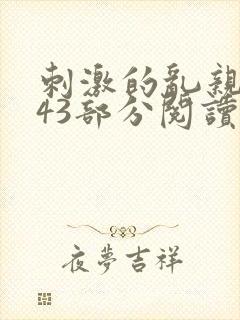 刺激的亂親
43部分閱讀
夜夢吉祥